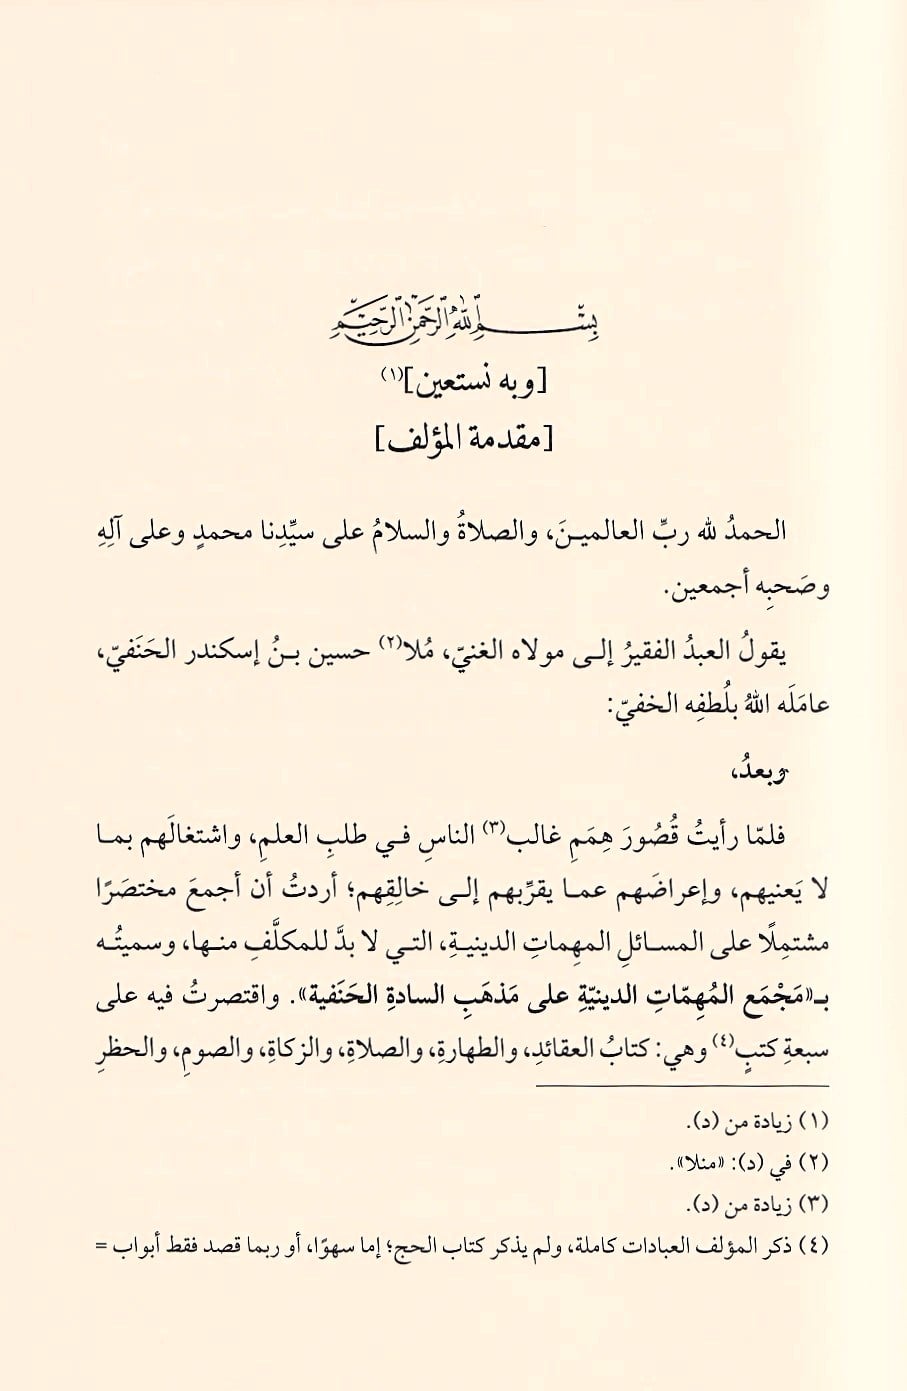 بِسْمِ اللَّهِ الرَّحْمَنِ الرَّحِيمِ
[وبه نستعين](١)
[مقدمة المؤلف]
الحمدُ لله ربِّ العالمينَ، والصلاةُ والسلامُ على سيِّدِنا محمدٍ وعلى آلِهِ
وصَحبِه أجمعين.
يقولُ العبدُ الفقيرُ إلى مولاه الغنيّ، مُلا(٢) حسين بنُ إسكندر الحَنَفيّ،
عامَلَه اللهُ بلُطفِه الخفيّ:
وبعدُ،
فلمّا رأيتُ قُصُورَ هِمَمِ غالب(٣) الناسِ في طلبِ العلمِ، واشتغالَهم بما
لا يَعنيهم، وإعراضَهم عما يقرِّبهم إلى خالِقِهم؛ أردتُ أن أجمعَ مختصَرًا
مشتمِلًا على المسائلِ المهِماتِ الدينيةِ، التي لا بدَّ للمكلَّفِ منها، وسميتُه
بـ«مَجْمَع المُهِمّاتِ الدينيّةِ على مَذهَبِ السادةِ الحَنَفية». واقتصرتُ فيه على
سبعةِ كتبٍ(٤) وهي: كتابُ العقائدِ، والطهارةِ، والصلاةِ، والزكاةِ، والصومِ، والحظرِ
(١) زيادة من (د).
(٢) في (د): «منلا».
(٣) زيادة من (د).
(٤) ذكر المؤلف العبادات كاملة، ولم يذكر كتاب الحج؛ إما سهوًا، أو ربما قصد فقط أبواب =